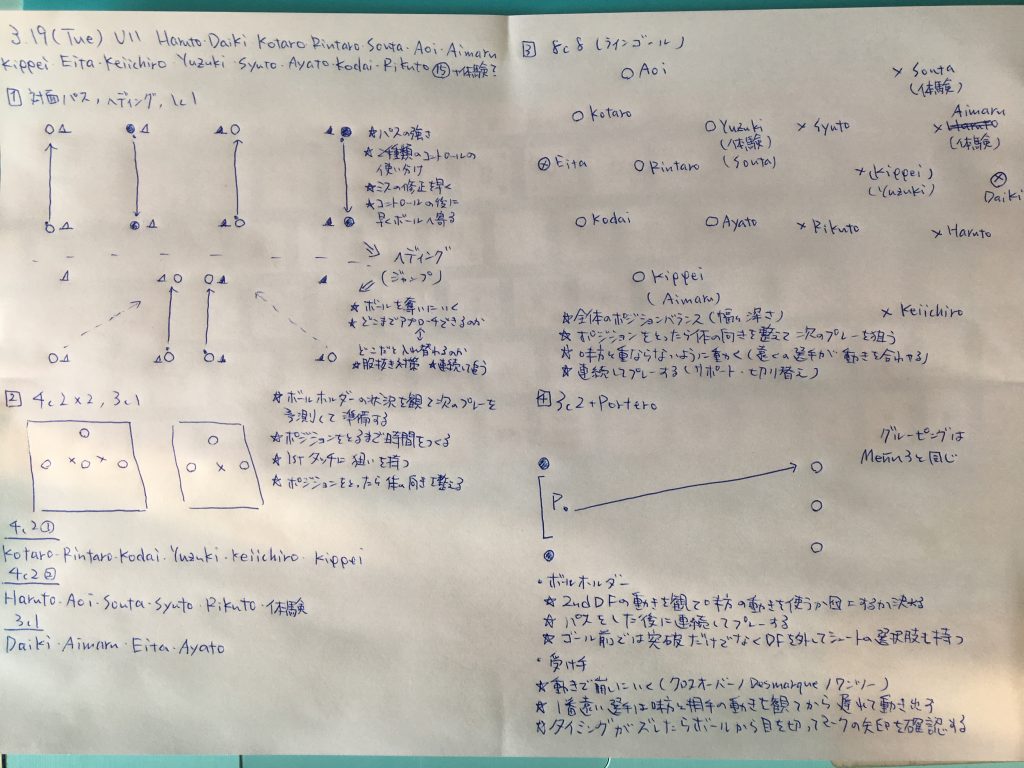 3.19(Tue) U11 Haruto・Daiki Kotaro Rintaro・Souta・Aoi・Aimaru
Kippei・Eita・Keiichiro Yuzuki・Syuto・Ayato・Kodai・Rikuto ⑮+体験?
1 対面パス, ヘディング, 1c1
☆パスの強さ
☆2種類のコントロールの
使い分け
☆ミスの修正を早く
☆コントロールの後に
早くボールへ寄る
ヘディング
(ジャンプ)
☆ボールを奪いにいく
☆どこまでアプローチできるのか
↑
どこだと入れ替わるのか
☆股抜き対策 ☆連続して追う
2 4c2×2, 3c1
☆ボールホルダーの状況を観て次のプレーを
予測して準備する
☆ポジションをとるまで時間をつくる
☆1stタッチに狙いを持つ
☆ポジションをとったら体の向きを整える
4c2①
Kotaro・Rintaro・Kodai・Yuzuki・Keiichiro・Kippei
4c2②
Haruto・Aoi・Souta・Syuto・Rikuto・体験
3c1
Daiki・Aimaru・Eita・Ayato
3 8c8 (ラインゴール)
○Aoi
×Souta
(体験)
○Kotaro
○Yuzuki
(体験)
(Souta)
×Syuto
Aimaru
×Haruto
(体験)
⊗Eita
○Rintaro
×(Kippei)
(Yuzuki)
⊗
Daiki
○Kodai
○Ayato
×Rikuto
×Haruto
○Kippei
(Aimaru)
×Keiichiro
☆全体のポジションバランス(幅と深さ)
☆ポジションをとったら体の向きを整えて次のプレーを狙う
☆味方と重ならないように動く(遠くの選手が動きを合わせる)
☆連続してプレーする(サポート・切り替え)
4 3c2+Portero
グルーピングは
Menu3と同じ
P。
・ボールホルダー
☆2ndDFの動きを観て味方の動きを使うか囮にするか決める
☆パスをした後に連続してプレーする
☆ゴール前では突破だけでなくDFを外してシュートの選択肢も持つ
・受け手
☆動きで崩しにいく(クロスオーバー/Desmarque/ワンツー)
☆1番遠い選手は味方と相手の動きを観てから遅れて動き出す
☆タイミングがズレたらボールから目を切ってマークの矢印を確認する